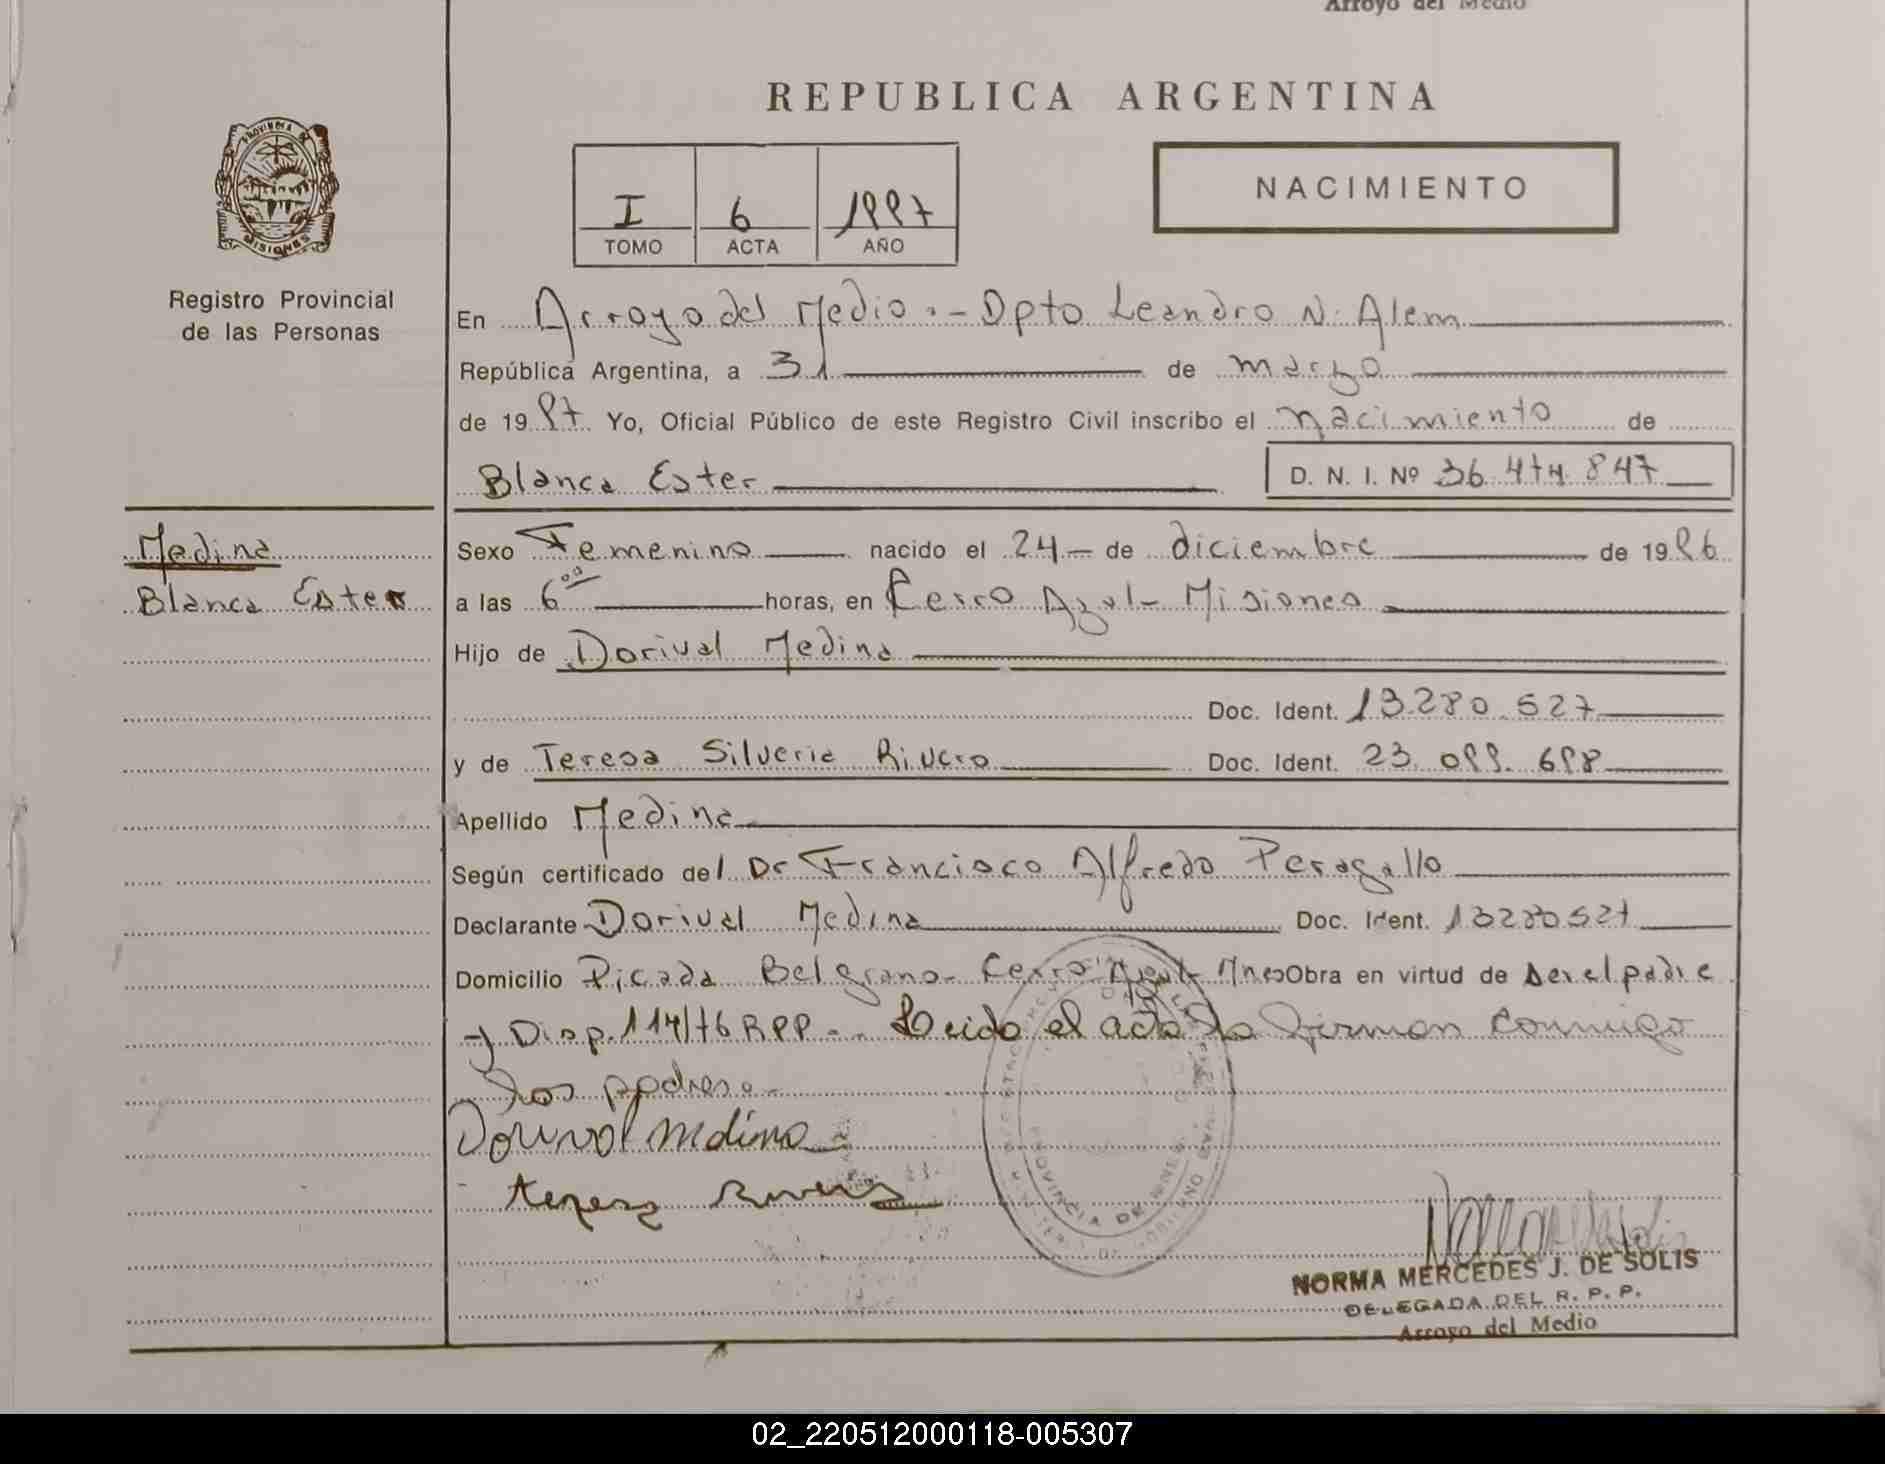 Arroyo del Medio
REPUBLICA ARGENTINA
PROVINCIA DE
MISIONES
Registro Provincial
de las Personas
I 6 1987
TOMO ACTA AÑO
NACIMIENTO
En Arroyo del Medio.- Dpto Leandro N. Alem
República Argentina, a 31 de marzo
de 1987 Yo, Oficial Público de este Registro Civil inscribo el nacimiento de
Blanca Ester D. N. I. Nº 36.474.847
Medina
Blanca Ester
Sexo Femenino nacido el 24 - de diciembre de 1986
a las 6 00 horas, en Cerro Azul - Misiones
Hijo de Dorival Medina
Doc. Ident. 13.280.527
y de Teresa Silveria Rivero Doc. Ident. 23.099.698
Apellido Medina
Según certificado del Dr Francisco Alfredo Peragallo
Declarante Dorival Medina Doc. Ident. 13280527
Domicilio Picada Belgrano - Cerro Azul - Mnes Obra en virtud de ser el padre
y Disp. 114/76 RPP.- Leido el acta la firman conmigo
los padres.-
Dorival Medina
Teresa Rivero
PROVINCIA DE MNES.
NORMA MERCEDES J. DE SOLIS
DELEGADA DEL R. P. P.
Arroyo del Medio
02_220512000118-005307